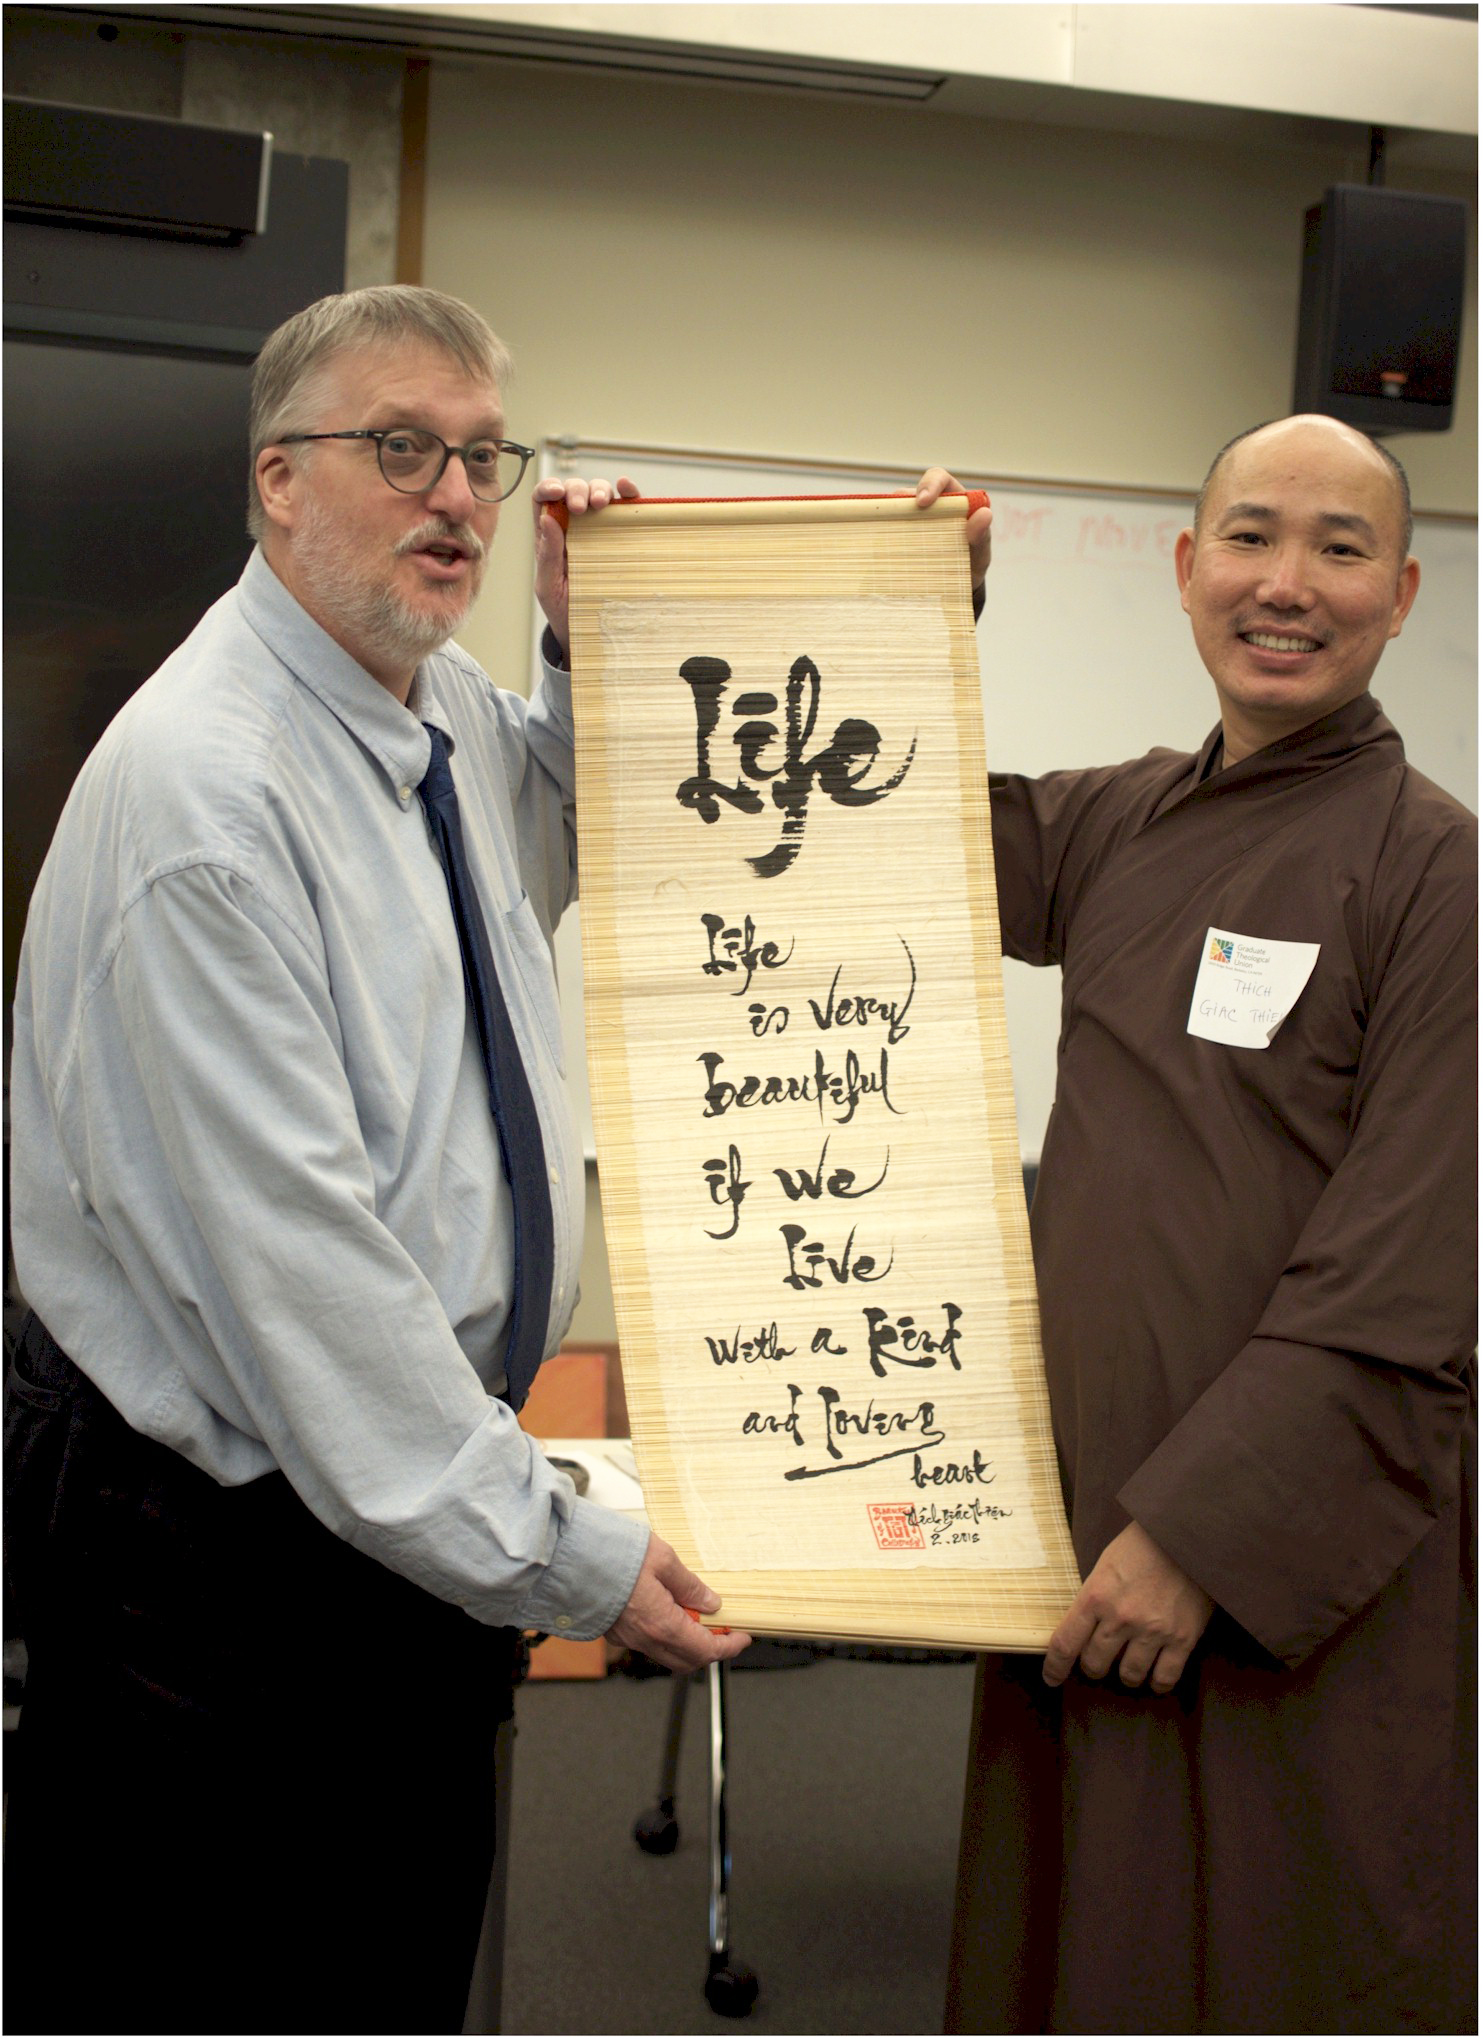 Life
Life
is very
beautiful
if we
live
with a kind
and loving
heart
2.2018
Graduate
Theological
Union
THICH
GIAC
NOT MOVE